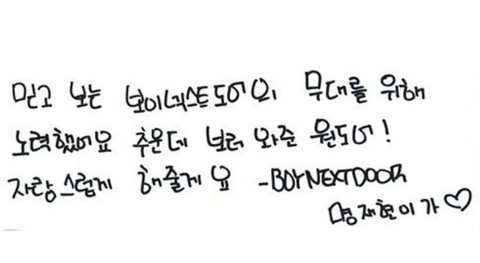 믿고 보는 보이넥스트도어의 무대를 위해
노력했어요 추운데 보러 와준 원도어!
자랑스럽게 해줄게요 -BOYNEXTDOOR
명재현이가♡